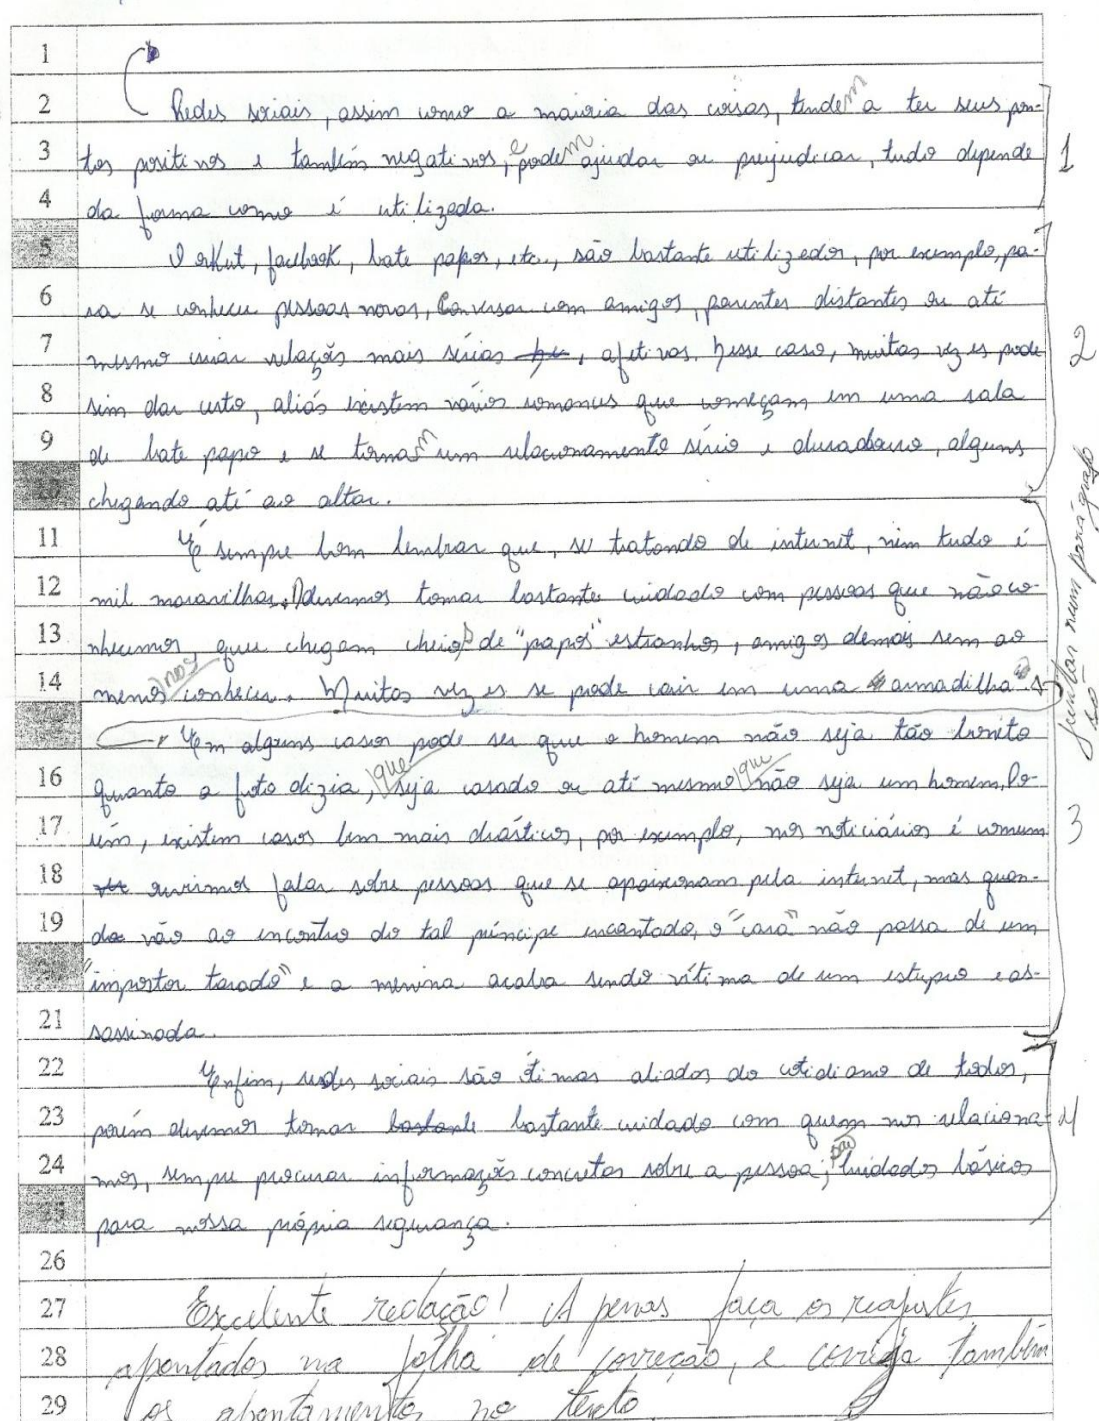 1
2 Redes sociais, assim como a maioria das coisas, tendem a ter seus pon-
3 tos positivos e também negativos, e podem ajudar ou prejudicar, tudo depende 1
4 da forma como é utilizada.
5 Orkut, facebook, bate papos, etc., são bastante utilizados, por exemplo, pa-
6 ra se conhecer pessoas novas, Conversar com amigos, parentes distantes ou até
7 mesmo criar relações mais sérias, afetivas. Nesse caso, muitas vezes pode 2
8 sim dar certo, aliás existem vários romances que começam em uma sala
9 de bate papo e se tornam um relacionamento sério e duradouro, alguns
10 chegando até ao altar.
11 É sempre bom lembrar que, se tratando de internet, nem tudo é
12 mil maravilhas. Devemos tomar bastante cuidado com pessoas que não co-
13 nhecemos, que chegam cheios de "papos" estranhos, amigos demais sem ao
14 menos nos conhecer. Muitas vezes se pode cair em uma armadilha
Juntar num parágrafo só
Em alguns casos pode ser que o homem não seja tão bonito
16 quanto a foto dizia, que seja casado ou até mesmo que não seja um homem. Po-
17 rém, existem casos bem mais drásticos, por exemplo, nos noticiários é comum 3
18 ouvirmos falar sobre pessoas que se apaixonam pela internet, mas quan-
19 do vão ao encontro do tal príncipe encantado, o "cara" não passa de um
"impostor tarado" e a menina acaba sendo vítima de um estupro e as-
21 sassinada.
22 Enfim, redes sociais são ótimas aliadas do cotidiano de todos,
23 porém devemos tomar bastante bastante cuidado com quem nos relaciona- 4
24 mos, sempre procurar informações concretas sobre a pessoa; são cuidados básicos
25 para nossa própria segurança.
26
27 Excelente redação! Apenas faça os reajustes
28 apontados na folha de correção, e corrija também
29 os apontamentos no texto.